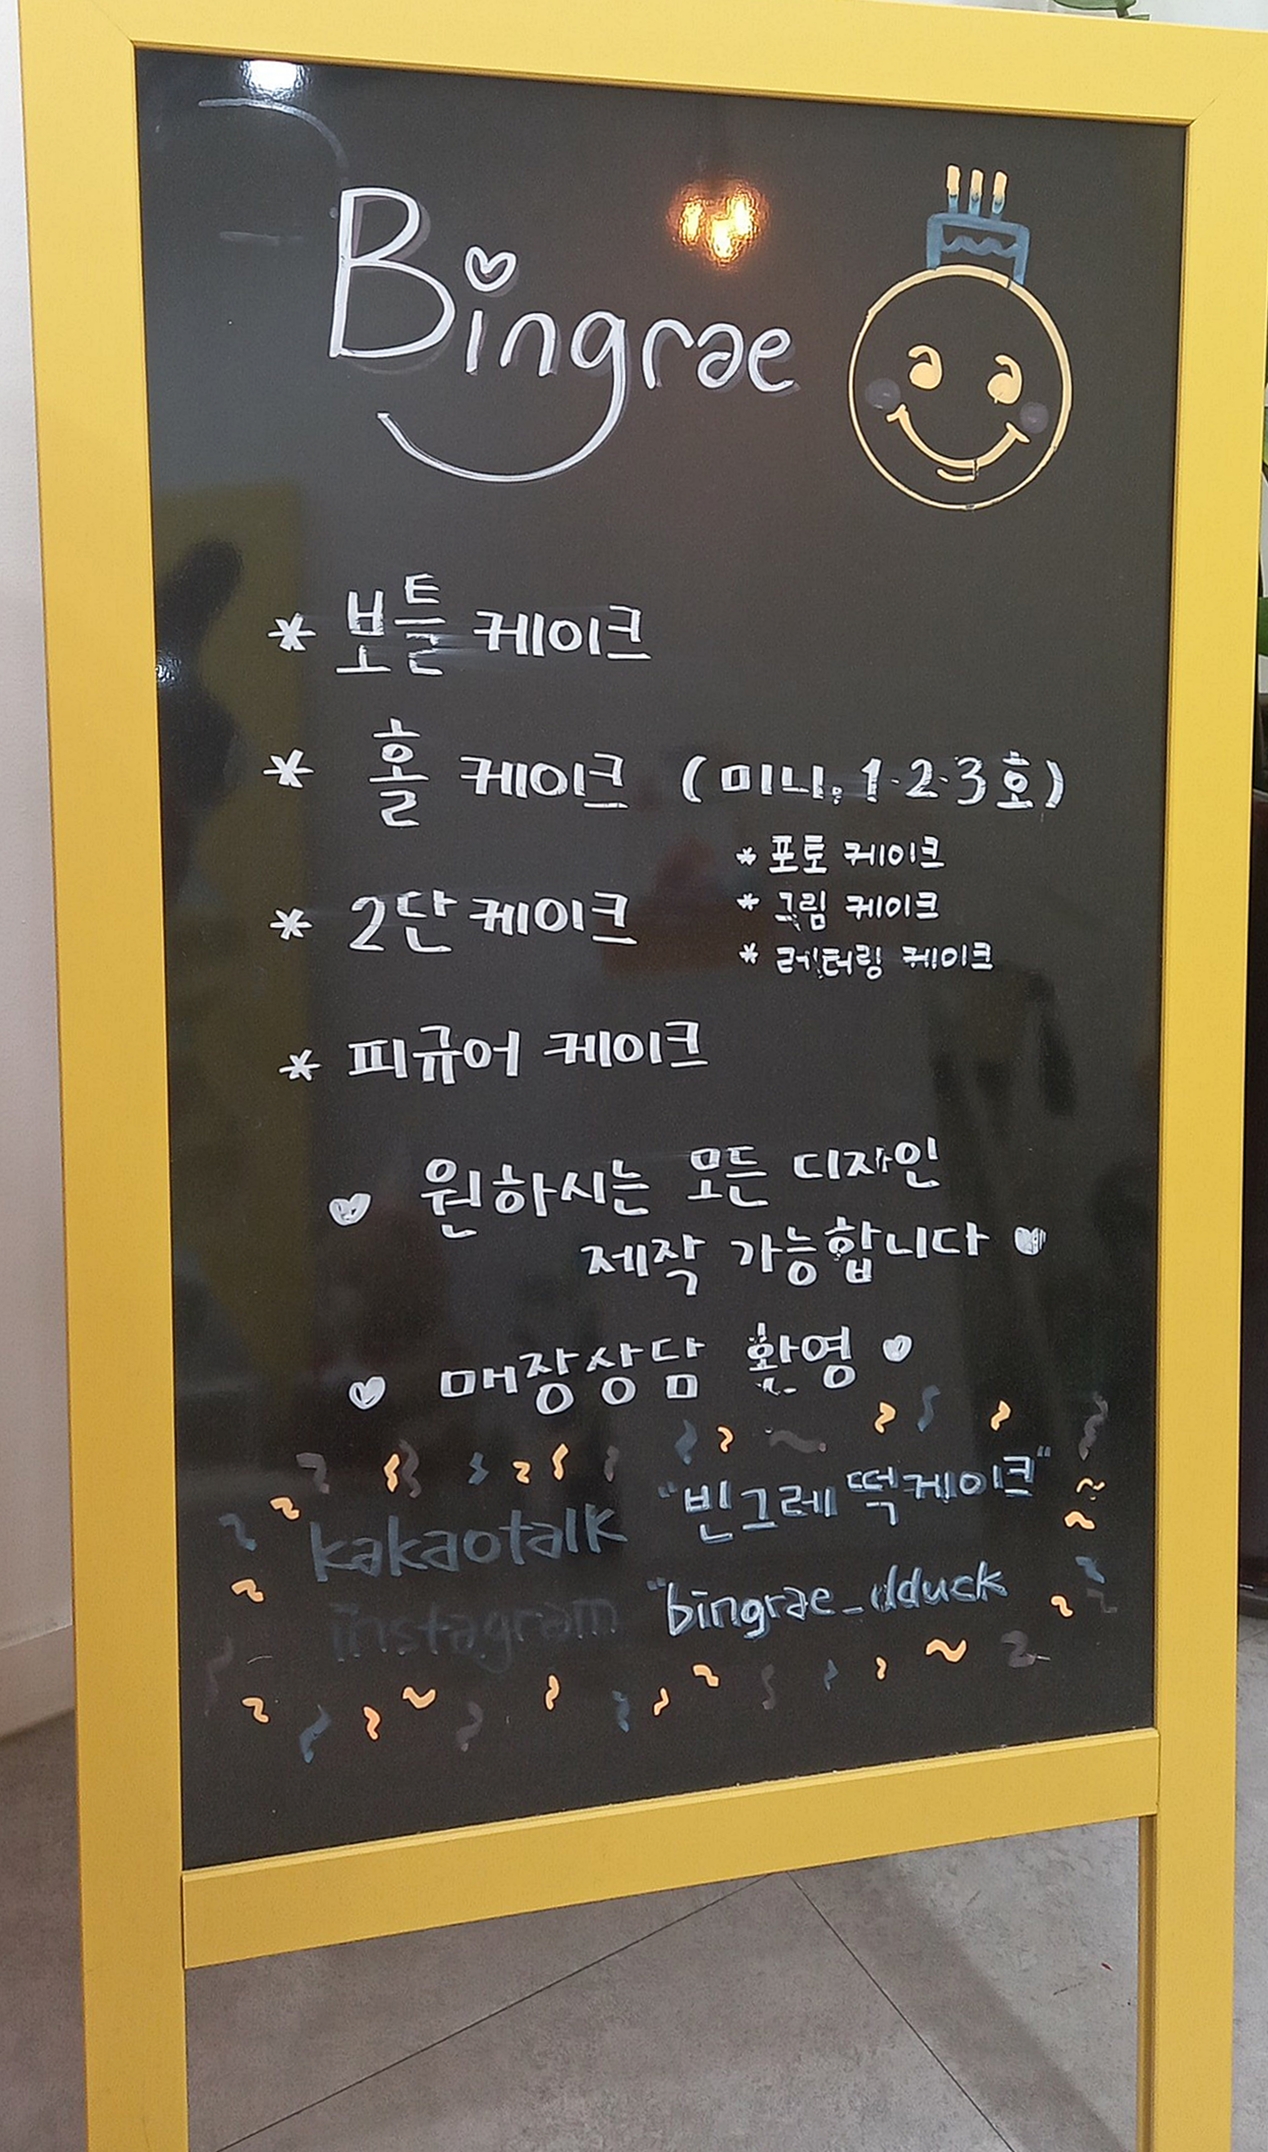 Bingrae
* 보틀 케이크
* 홀 케이크 (미니, 1·2·3호)
* 포토 케이크
* 그림 케이크
* 레터링 케이크
* 2단케이크
* 피규어 케이크
♥ 원하시는 모든 디자인
제작 가능합니다 ♥
♥ 매장상담 환영 ♥
kakaotalk "빈그레 떡케이크"
instagram "bingrae_dduck